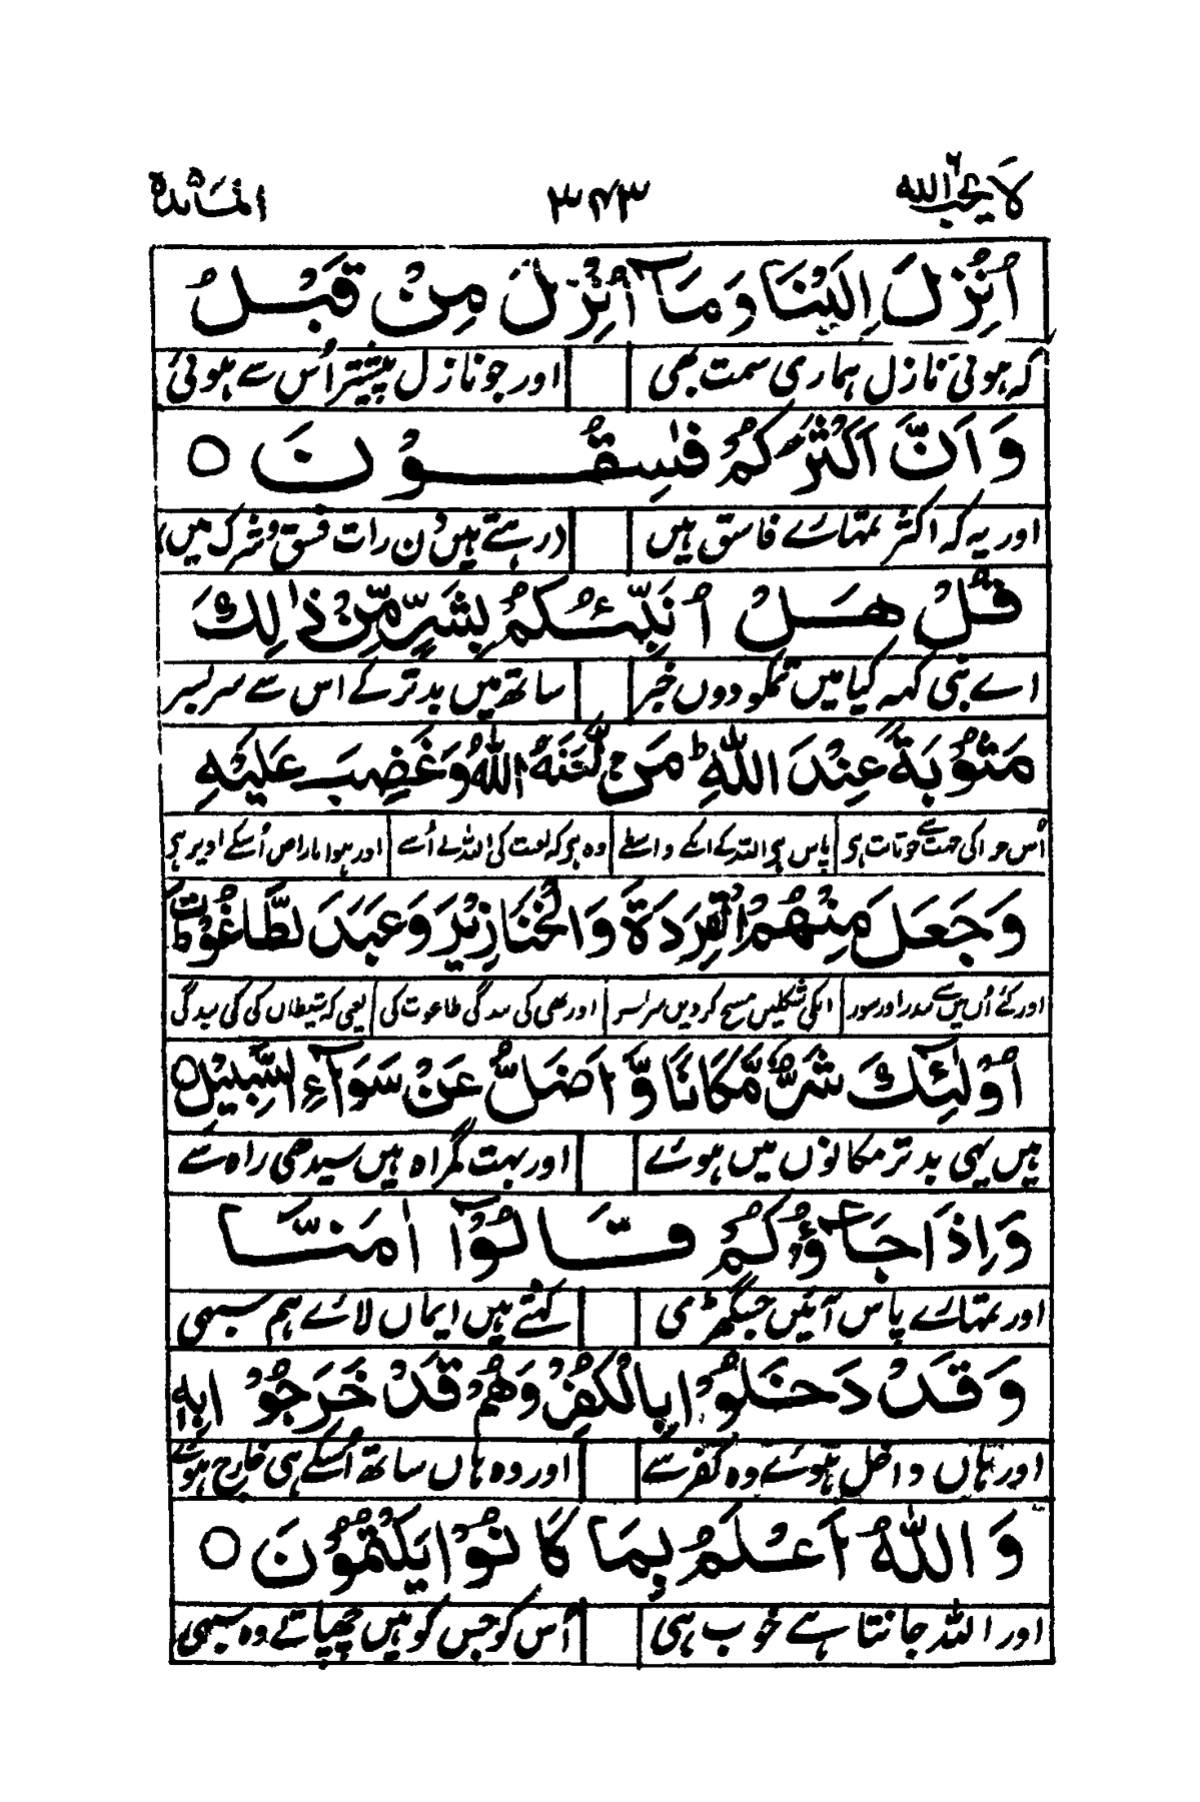 لَا يُحِبُّ اللّٰهُ ٦ ٣٤٣ المَآئدة ٥
اُنْزِلَ اِلَيْنَا وَمَآ اُنْزِلَ مِنْ قَبْلُ
کہ ہوئی نازل ہماری سمت بھی اور جو نازل پیشتر اُس سے ہوئی
وَاَنَّ اَكْثَرَكُمْ فٰسِقُوْنَ ○
اور یہ کہ اکثر تمہارے فاسق ہیں (در ہستے ہیں دن رات فسق و شرک میں)
قُلْ هَلْ اُنَبِّئُكُمْ بِشَرٍّ مِّنْ ذٰلِكَ
اے نبی کہہ کیا میں تمکو دوں خبر ساتھ میں بدتر کے اس سے سر بسر
مَثُوْبَةً عِنْدَ اللّٰهِ ؕ مَنْ لَّعَنَهُ اللّٰهُ وَغَضِبَ عَلَيْهِ
اُس جزا کی پاس ہے اللہ کے اسکے واسطے وہ ہے کہ لعنت کی اللہ نے اُسے اور ہوا ناراض اُسکے اوپر ہے
وَجَعَلَ مِنْهُمُ الْقِرَدَةَ وَالْخَنَازِيْرَ وَعَبَدَ الطَّاغُوْتَ ؕ
اور کئے اُن میں سے بندر اور سور انکی شکلیں مسخ کر دیں سر بسر اور بھی کی بندگی طاغوت کی یعنی کہ شیطاں کی کی بندگی
اُولٰٓئِكَ شَرٌّ مَّكَانًا وَّاَضَلُّ عَنْ سَوَآءِ السَّبِيْلِ ○
ہیں یہی بدتر مکانوں میں ہوئے اور بہت گمراہ ہیں سیدھی راہ سے
وَاِذَا جَآءُوْكُمْ قَالُوْٓا اٰمَنَّا
اور تمہارے پاس آئیں جس گھڑی کہتے ہیں ایماں لائے ہم سبھی
وَقَدْ دَخَلُوْا بِالْكُفْرِ وَهُمْ قَدْ خَرَجُوْا بِهٖ
اور ہاں داخل ہوئے وہ کفر سے اور وہ ہاں ساتھ اُسکے ہی خارج ہوئے
وَاللّٰهُ اَعْلَمُ بِمَا كَانُوْا يَكْتُمُوْنَ ○
اور اللہ جانتا ہے خوب ہی اُس کو جس کو ہیں چھپاتے وہ سبھی